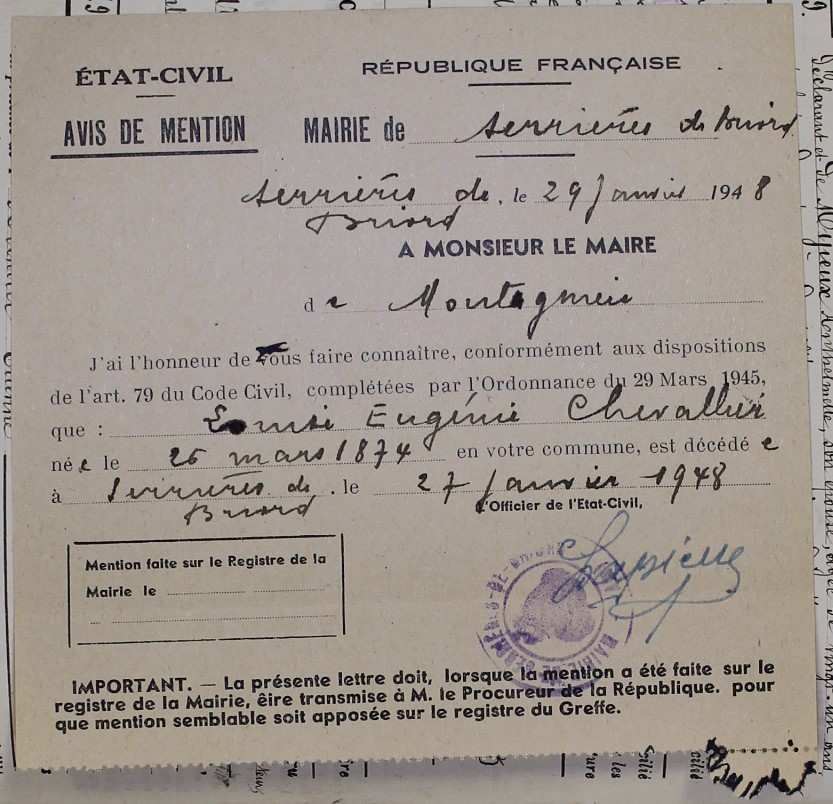 ÉTAT-CIVIL
RÉPUBLIQUE FRANÇAISE
AVIS DE MENTION
MAIRIE de Serrières de Briord
Serrières de , le 29 Janvier 1948
Briord
A MONSIEUR LE MAIRE
de Montagnieu
J'ai l'honneur de vous faire connaître, conformément aux dispositions
de l'art. 79 du Code Civil, complétées par l'Ordonnance du 29 Mars 1945,
que : Louise Eugénie Chevallier
née le 26 mars 1874 en votre commune, est décédée
à Serrières de , le 27 Janvier 1948
Briord
L'Officier de l'Etat-Civil,
Mention faite sur le Registre de la
Mairie le
MAIRIE DE
IMPORTANT. — La présente lettre doit, lorsque la mention a été faite sur le
registre de la Mairie, êire transmise à M. le Procureur de la République. pour
que mention semblable soit apposée sur le registre du Greffe.